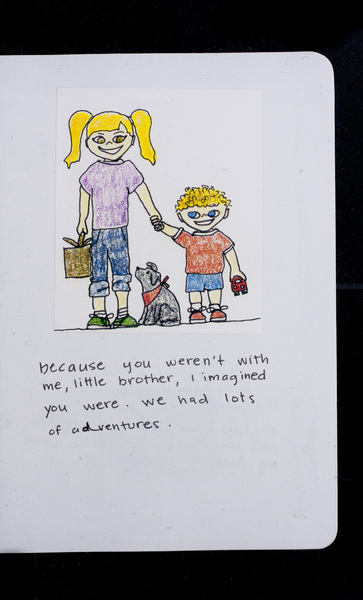 because you weren't with
me, little brother, I imagined
you were. we had lots
of adventures.